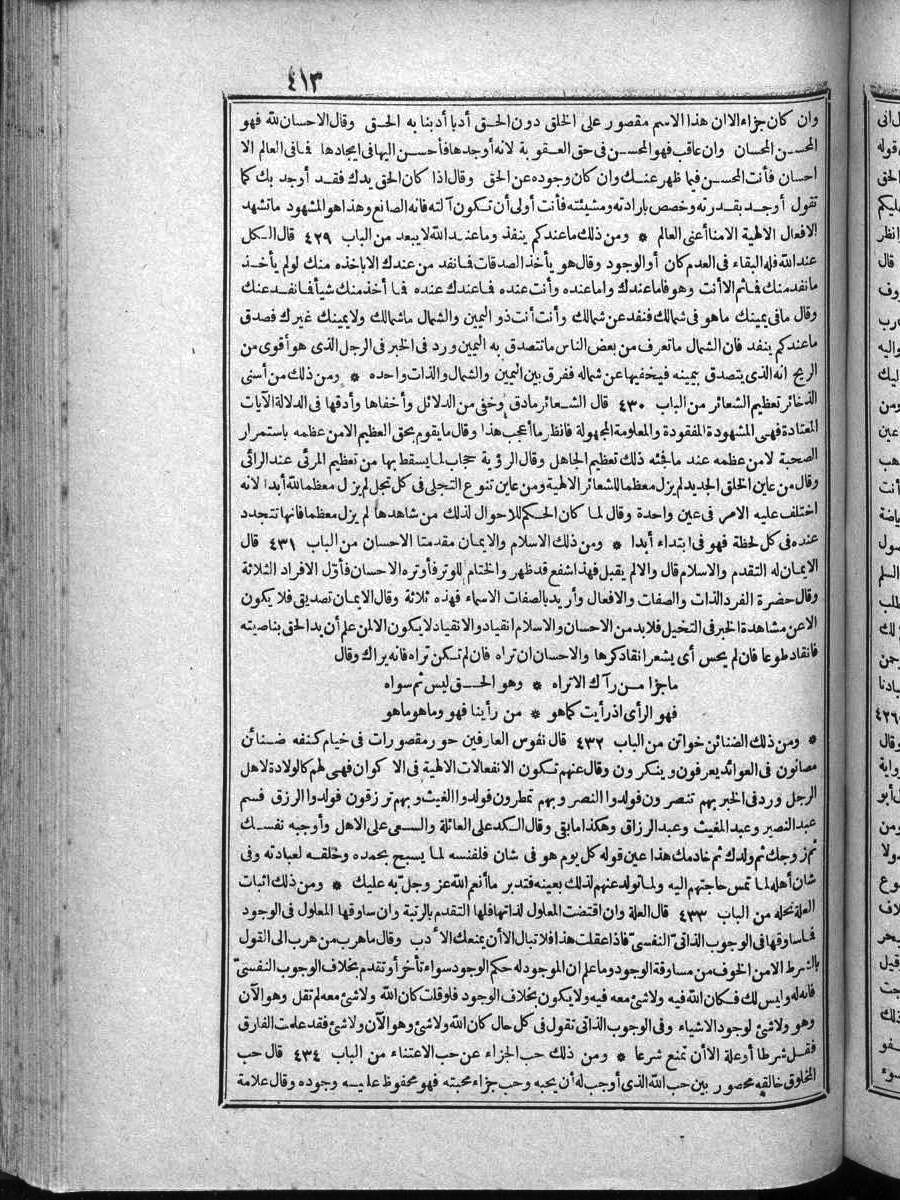 ٤١٣
وان كان جزاء الا ان هذا الاسم مقصور على الخلق دون الحق أدبا أدبنا به الحق وقال الاحسان لله فهو
المحسن المحسان وان عاقب فهو المحسن فى حق العقوبة لانه أوجدها فأحسن اليها فى ايجادها فما فى العالم الا
احسان فأنت المحسن فيما ظهر عنك وان كان وجوده عن الحق وقال اذا كان الحق يدك فقد أوجد بك كما
تقول أوجد بقدرته وخصص بارادته ومشيئته فأنت أولى أن تكون آلته فانه الصانع وهذا هو المشهود ما تشهد
الافعال الالهية الامنا أعنى العالم * ومن ذلك ما عندكم ينفذ وما عند الله لا يبعد من الباب ٤٢٩ قال الكل
عند الله فله البقاء فى العدم كان أو الوجود وقال هو يأخذ الصدقات فما نفد من عندك الا باخذه منك لو لم يأخذ
ما نفد منك فما ثم الا أنت وهو فاما عندك واما عنده وأنت عنده فما عندك عنده فما أخذ منك شيأ فما نفد عنك
وقال ما فى يمينك ما هو فى شمالك فنفد عن شمالك وأنت أنت ذو اليمين والشمال ما شمالك ولا يمينك غيرك فصدق
ما عندكم ينفد فان الشمال ما تعرف من بعض الناس ما تتصدق به اليمين ورد فى الخبر فى الرجل الذى هو أقوى من
الريح انه الذى يتصدق بيمينه فيخفيها عن شماله ففرق بين اليمين والشمال والذات واحده * ومن ذلك من أسنى
الذخائر تعظيم الشعائر من الباب ٤٣٠ قال الشعائر ما دق وخفى من الدلائل وأخفاها وأدقها فى الدلالة الآيات
المعتادة فهى المشهودة المفقودة والمعلومة المجهولة فانظر ما أعجب هذا وقال ما يقوم بحق العظيم الا من عظمه باستمرار
الصحبة لا من عظمه عند ما فجئه ذلك تعظيم الجاهل وقال الرؤية حجاب لما يسقط بها من تعظيم المرئى عند الرائى
وقال من عاين الخلق الجديد لم يزل معظما للشعائر الالهية ومن عاين تنوع التجلى فى كل تجل لم يزل معظما لله أبدا لانه
اختلف عليه الامر فى عين واحدة وقال لما كان الحكم للاحوال لذلك من شاهدها لم يزل معظما فانها تتجدد
عنده فى كل لحظة فهو فى ابتداء أبدا * ومن ذلك الاسلام والايمان مقدمتا الاحسان من الباب ٤٣١ قال
الايمان له التقدم والاسلام قال والا لم يقبل فهذا شفع قد ظهر والختام للوتر فأوتره الاحسان فأول الافراد الثلاثة
وقال حضرة الفرد الذات والصفات والافعال وأريد بالصفات الاسماء فهذه ثلاثة وقال الايمان تصديق فلا يكون
الا عن مشاهدة الخبر فى التخيل فلا بد من الاحسان والاسلام انقياد والانقياد لا يكون الا لمن علم أن يد الحق بناصيته
فانقاد طوعا فان لم يحس أى يشعر انقاد كرها والاحسان ان تراه فان لم تكن تراه فانه يراك وقال
ما جزا من رآك الا تراه * وهو الحق ليس ثم سواه
فهو الرأى اذ رأيت كما هو * من رأينا فهو وما هو ما هو
* ومن ذلك الضنائن خواتن من الباب ٤٣٢ قال نفوس العارفين حور مقصورات فى خيام كنفه ضنائن
مصانون فى العوائد يعرفون وينكرون وقال عنهم تكون الانفعالات الالهية فى الاكوان فهى لهم كالولادة لاهل
الرجل ورد فى الخبر بهم تنصرون فولدوا النصر وبهم تمطرون فولدوا الغيث وبهم ترزقون فولدوا الرزق فسم
عبد النصير وعبد المغيث وعبد الرزاق وهكذا ما بقى وقال الكد على العائلة والسعى على الاهل وأوجبه نفسك
ثم زوجك ثم ولدك ثم خادمك هذا عين قوله كل يوم هو فى شان فلنفسه لما يسبح بحمده وخلقه لعبادته وفى
شان أهله لما تمس حاجتهم اليه ولما تولد عنهم لذلك بعينه فتدبر ما أنعم الله عز وجل به عليك * ومن ذلك اثبات
العلة نحله من الباب ٤٣٣ قال العلة وان اقتضت المعلول لذاتها فلها التقدم بالرتبة وان ساوقها المعلول فى الوجود
فما ساوقها فى الوجوب الذاتى النفسى فاذا عقلت هذا فلا تبال الا أن يمنعك الأدب وقال ما هرب من هرب الى القول
بالشرط الا من الخوف من مساوقة الوجود وما علم ان الموجود له حكم الوجود سواء تأخر أو تقدم بخلاف الوجوب النفسى
فانه له وليس لك فكان الله فيه ولا شئ معه فيه ولا يكون بخلاف الوجود فلو قلت كان الله ولا شئ معه لم تقل وهو الآن
وهو ولا شئ لوجود الاشياء وفى الوجوب الذاتى تقول فى كل حال كان الله ولا شئ وهو الآن ولا شئ فقد علمت الفارق
فقل شرطا أو علة الا أن تمنع شرعا * ومن ذلك حب الجزاء عن حب الاعتناء من الباب ٤٣٤ قال حب
المخلوق خالقه محصور بين حب الله الذى أوجب له أن يحبه وحب جزاء محبته فهو محفوظ عليه وجوده وقال علامة